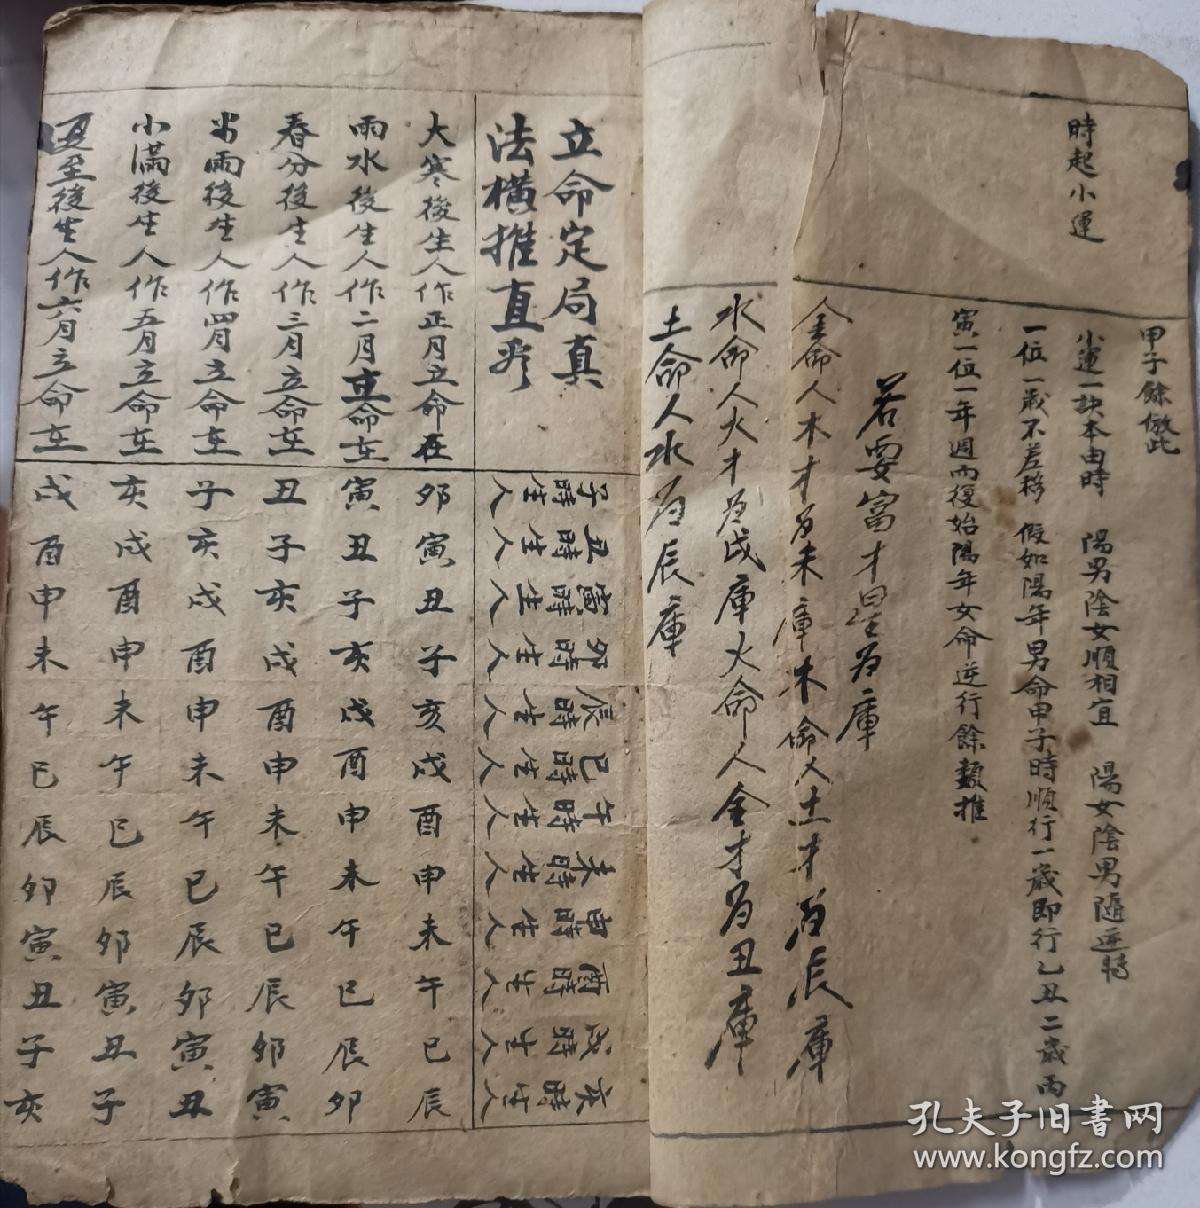 甲子餘倣此
時起小運
小運一訣本由時 陽男陰女順相宜 陽女陰男隨逆轉
一位一歲不差移 假如陽年男命甲子時順行一歲即行乙丑二歲丙
寅一位一年週而復始陽年女命逆行餘類推
若要富才星為庫
金命人木才為未庫木命人土才為辰庫
水命人火才為戌庫火命人金才為丑庫
土命人水為辰庫
立命定局真
法橫推直看
子時生人 丑時生人 寅時生人 卯時生人 辰時生人 巳時生人 午時生人 未時生人 申時生人 酉時生人 戌時生人 亥時生人
大寒後生人作正月立命在 卯寅丑子亥戌酉申未午巳辰
雨水後生人作二月立命在 寅丑子亥戌酉申未午巳辰卯
春分後生人作三月立命在 丑子亥戌酉申未午巳辰卯寅
谷雨後生人作四月立命在 子亥戌酉申未午巳辰卯寅丑
小滿後生人作五月立命在 亥戌酉申未午巳辰卯寅丑子
夏至後生人作六月立命在 戌酉申未午巳辰卯寅丑子亥
孔夫子旧书网
www.kongfz.com